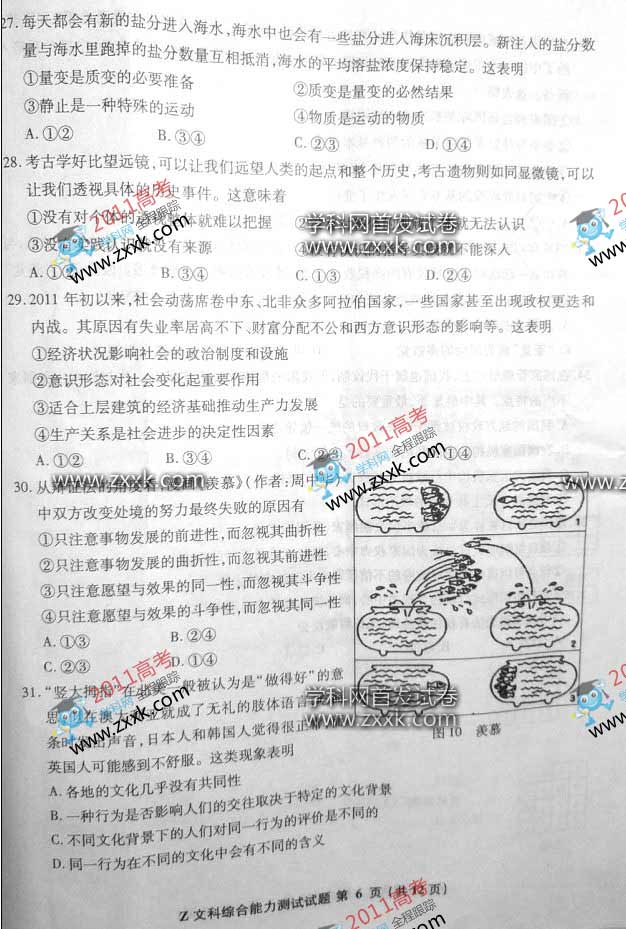 27. 每天都会有新的盐分进入海水,海水中也会有一些盐分进入海床沉积层。新注入的盐分数
量与海水里跑掉的盐分数量互相抵消,海水的平均溶盐浓度保持稳定。这表明
①量变是质变的必要准备 ②质变是量变的必然结果
③静止是一种特殊的运动 ④物质是运动的物质
A. ①② B. ③④ C. ②③ D. ①④
28. 考古学好比望远镜,可以让我们远望人类的起点和整个历史,考古遗物则如同显微镜,可以
让我们透视具体的历史事件。这意味着
①没有对 体的 体就难以把握 ② 就无法认识
③没有实践认识就没有来源 ④ 不能深入
A. ①② B. ③④ C. ②③ D. ①④
29. 2011 年初以来,社会动荡席卷中东、北非众多阿拉伯国家,一些国家甚至出现政权更迭和
内战。其原因有失业率居高不下、财富分配不公和西方意识形态的影响等。这表明
①经济状况影响社会的政治制度和设施
②意识形态对社会变化起重要作用
③适合上层建筑的经济基础推动生产力发展
④生产关系是社会进步的决定性因素
A. ①② B. ③④ C. ②③ D. ①④
30. 从辩证法的角度看,漫画《羡慕》(作者:周中
中双方改变处境的努力最终失败的原因有
①只注意事物发展的前进性,而忽视其曲折性
②只注意事物发展的曲折性,而忽视其前进性
③只注意愿望与效果的同一性,而忽视其斗争性
④只注意愿望与效果的斗争性,而忽视其同一性
A. ①③ B. ②④
C. ②③ D. ①④
1
2
3
图 10 羡慕
31. “竖大拇指”在北美一般被认为是“做得好”的意
思,但在澳大利亚就成了无礼的肢体语言
条时 出声音,日本人和韩国人觉得很正常
英国人可能感到不舒服。这类现象表明
A. 各地的文化几乎没有共同性
B. 一种行为是否影响人们的交往取决于特定的文化背景
C. 不同文化背景下的人们对同一行为的评价是不同的
D. 同一行为在不同的文化中会有不同的含义
Z 文科综合能力测试试题 第 6 页(共 12 页)
2011高考
学科网 全程跟踪
www.zxxk.com
学科网首发试卷
www.zxxk.com
2011高考
学科网 全程跟踪
www.zxxk.com
www.zxxk.com
2011高考
学科网 全程跟踪
www.zxxk.com
2011高考
学科网 全程跟踪
www.zxxk.com
学科网首发试卷
www.zxxk.com
2011高考
学科网 全程跟踪
www.zxxk.com
2011高考
学科网 全程跟踪
www.zxxk.com